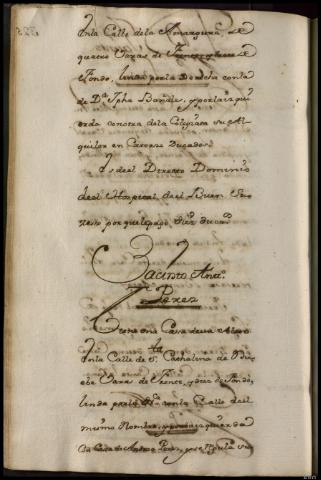 En la Calle de la Amargura, de
quatro Varas de Frente, y trece de
Fondo, linda por la Derecha con la
de Dª Jpha Bandes, y por la izqui
erda con otra de la Colegiata su Al
quiler en Catorze Ducados
Es de el Directo Dominio
de el Hospital de el Buen Su
por que le pago diez duca
Jacinto Antº
Perez
Tiene una Casa de su
En la Calle de Sta Cathalina de
Varas de Frente, y diez de Fondo,
linda por la Dª con la Calle de el
mismo Nombre, y por la izquierda
Casa de Andres Perez, y se regula su